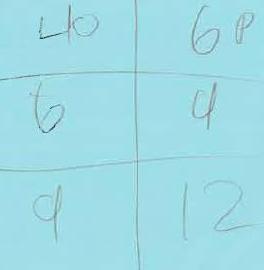 40 6P
6 4
9 12